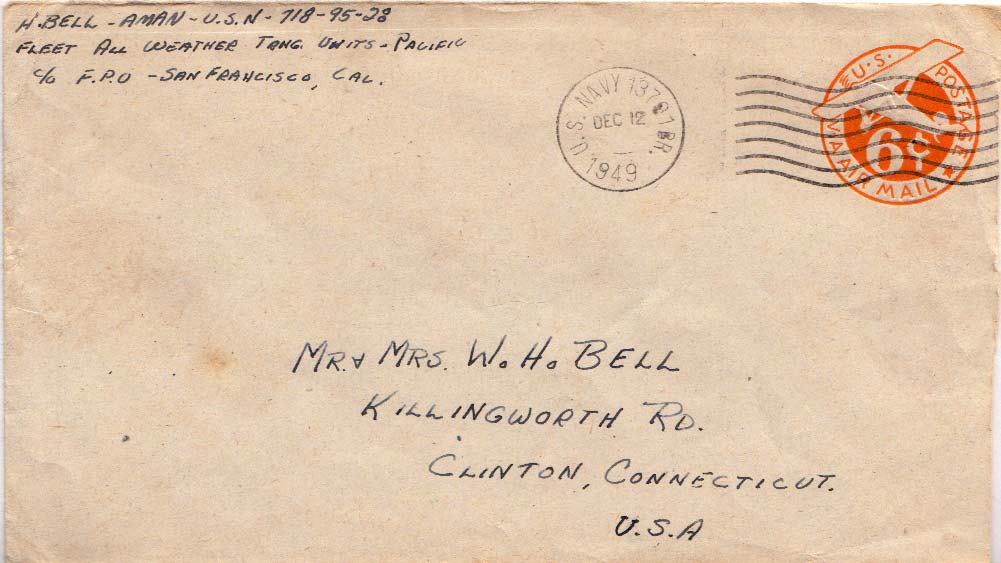 H. BELL - AMAN - U.S.N - 718-95-28
FLEET ALL WEATHER TRNG. UNITS - PACIFIC
C/O F.P.O - SAN FRANCISCO, CAL.
U.S. NAVY 13781 BR.
DEC 12
1949
U.S. POSTAGE
6¢
VIA AIR MAIL
MR. & MRS. W. H. BELL
KILLINGWORTH RD.
CLINTON, CONNECTICUT.
U.S.A